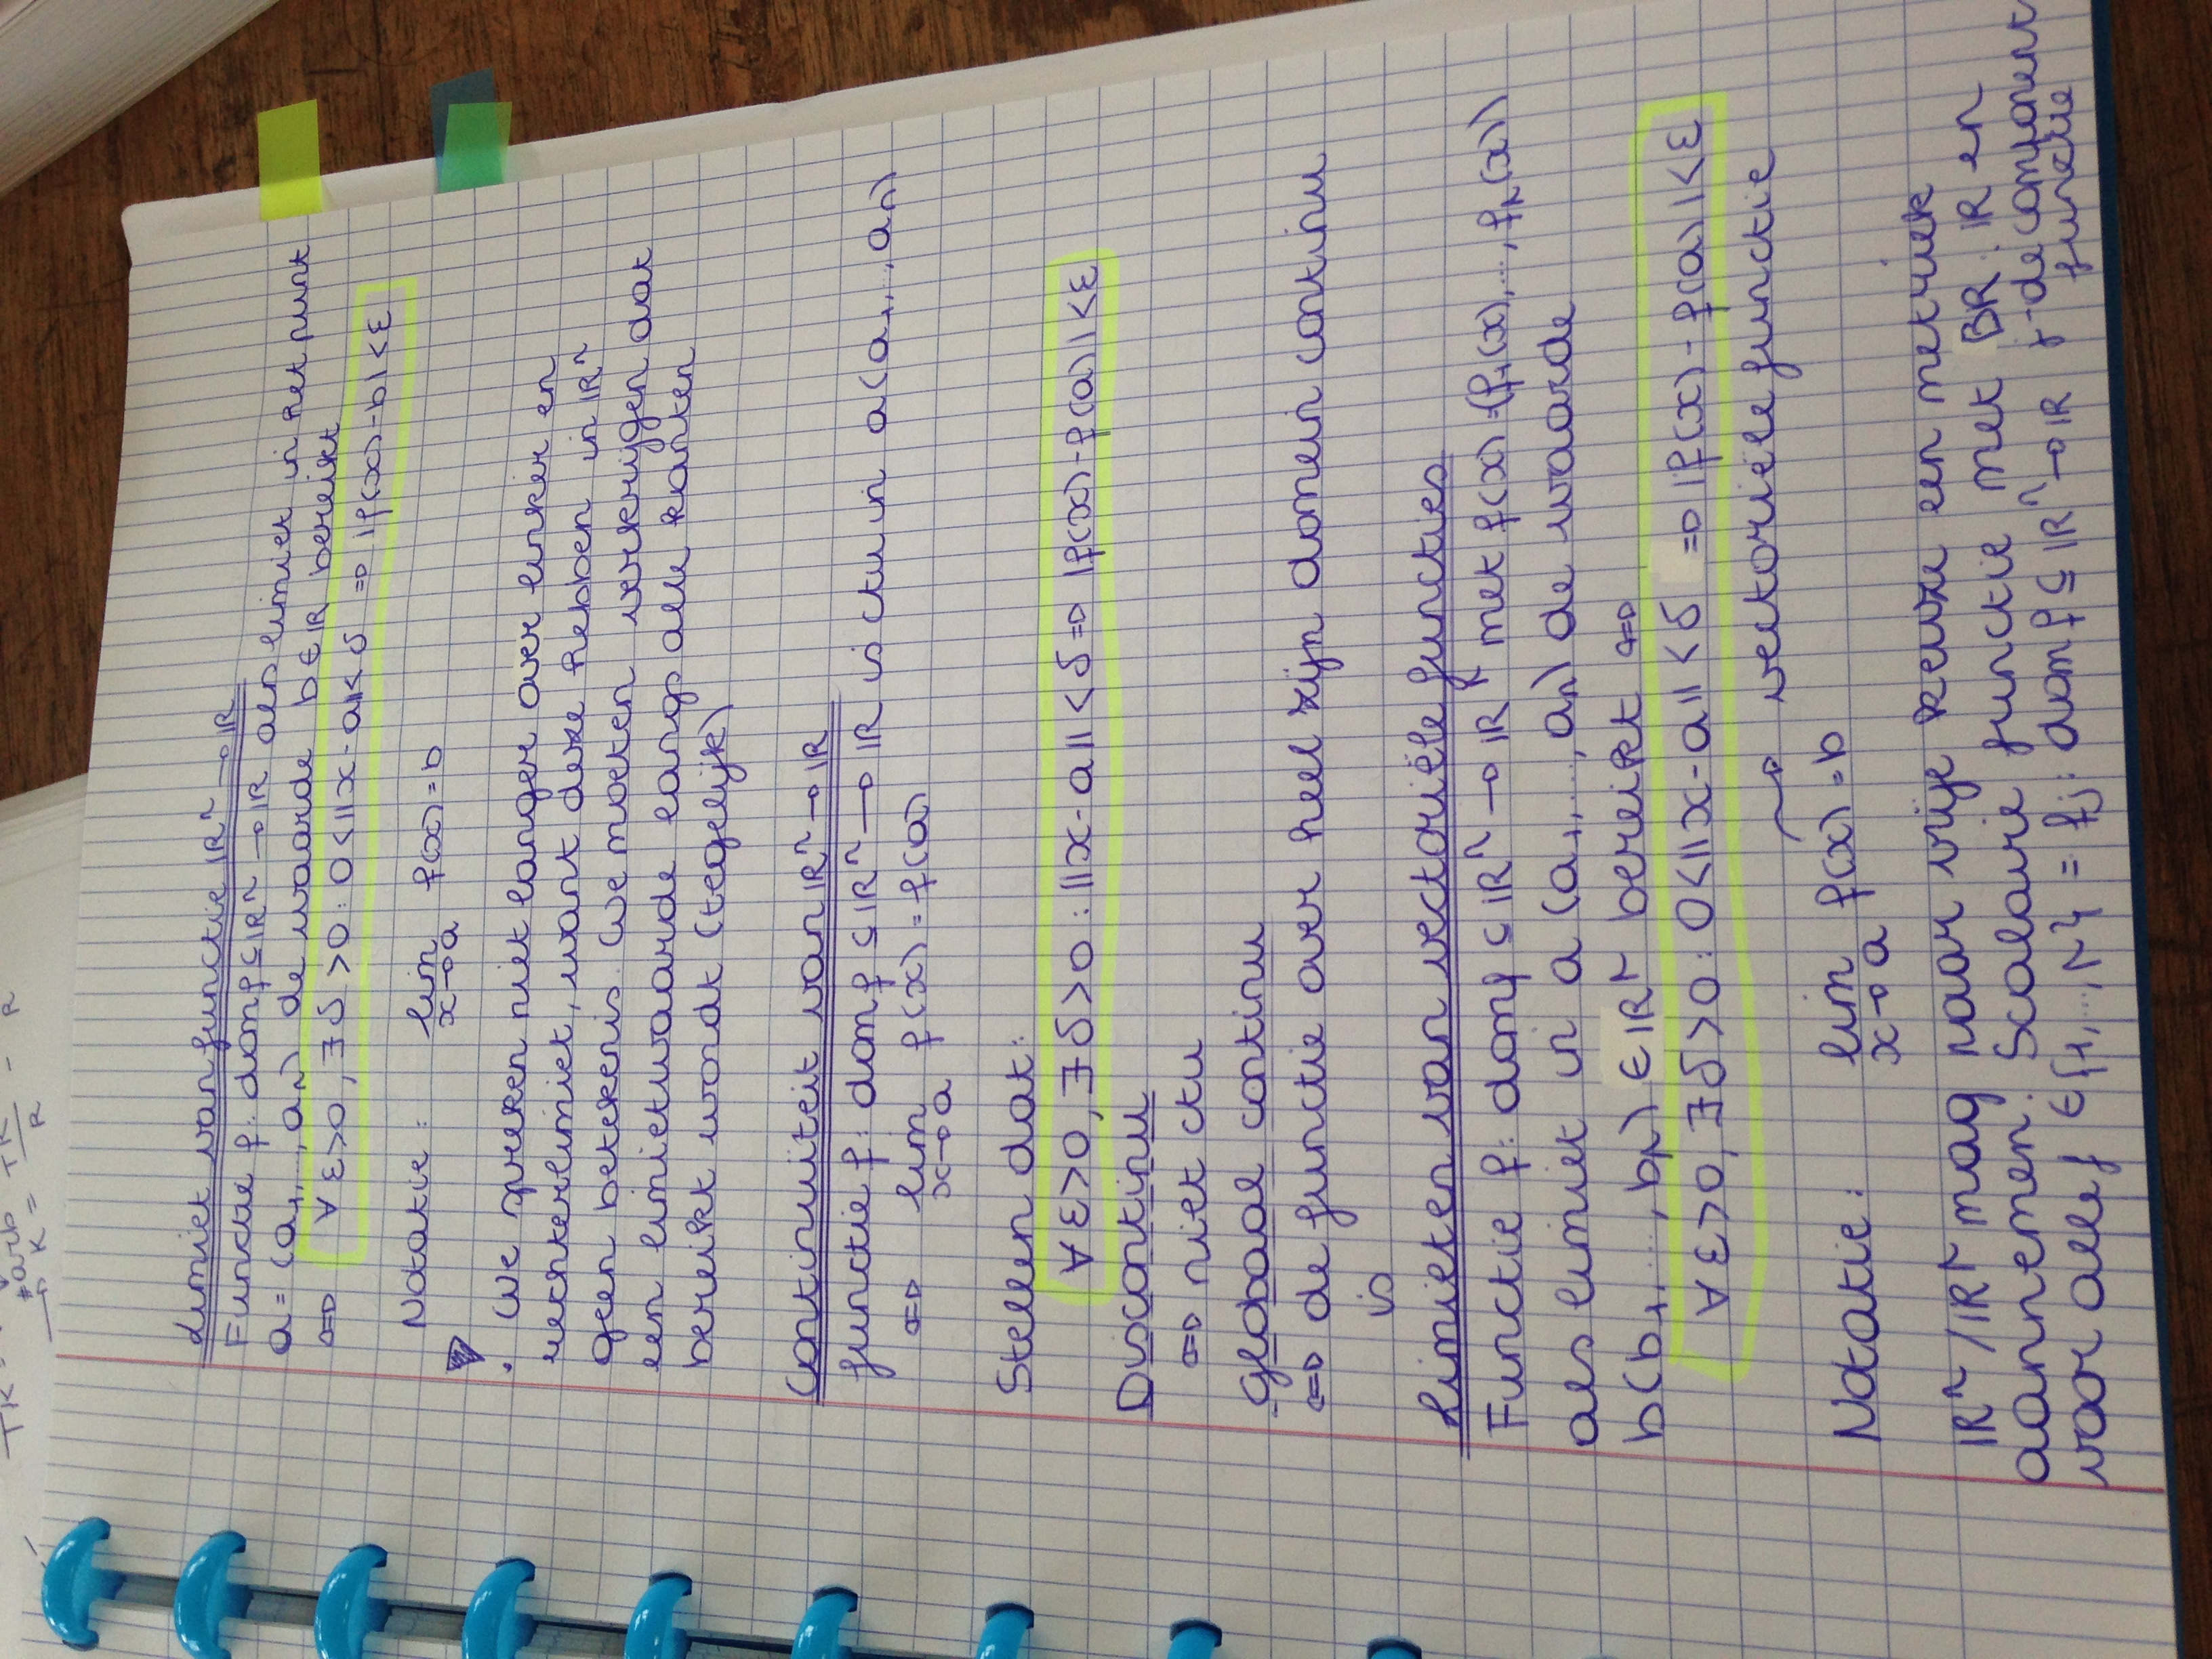 Limiet van functie ℝⁿ → ℝ
Functie f: dom f ⊆ ℝⁿ → ℝ als limiet in het punt
a = (a₁, ..., aₙ) de waarde b ∈ ℝ bereikt
⇔ ∀ε>0, ∃δ>0: 0<||x-a||<δ ⇒ |f(x)-b|<ε
Notatie: lim f(x)=b
x→a
• We spreken niet langer over linker en
rechterlimiet, want deze hebben in ℝⁿ
geen betekenis. (We moeten verkrijgen dat
een limietwaarde langs alle kanten
bereikt wordt (tegelijk)
Continuïteit van ℝⁿ → ℝ
functie f: dom f ⊆ ℝⁿ → ℝ is ctu in a(a₁, ..., aₙ)
⇔ lim f(x) = f(a)
x→a
Stellen dat:
∀ε>0, ∃δ>0: ||x-a||<δ ⇒ |f(x)-f(a)|<ε
Discontinu
⇔ niet ctu
Globaal continu
⇔ de functie over heel zijn domein continu
is
Limieten van vectoriële functies
Functie f: dom f ⊆ ℝⁿ → ℝᴺ met f(x)=(f₁(x), ..., f_N(x))
als limiet in a (a₁, ..., aₙ) de waarde
b(b₁, ..., b_N) ∈ ℝᴺ bereikt ⇔
∀ε>0, ∃δ>0: 0<||x-a||<δ ⇒ |f(x)-f(a)|<ε
→ vectoriële functie
Notatie: lim f(x)=b
x→a
ℝⁿ/ℝᴺ mag naar vrije keuze een metriek
aannemen. Scalaire functie met BR: ℝ en
voor alle j ∈ {1, ..., N} = fⱼ: dom f ⊆ ℝⁿ → ℝ j-de component
functie